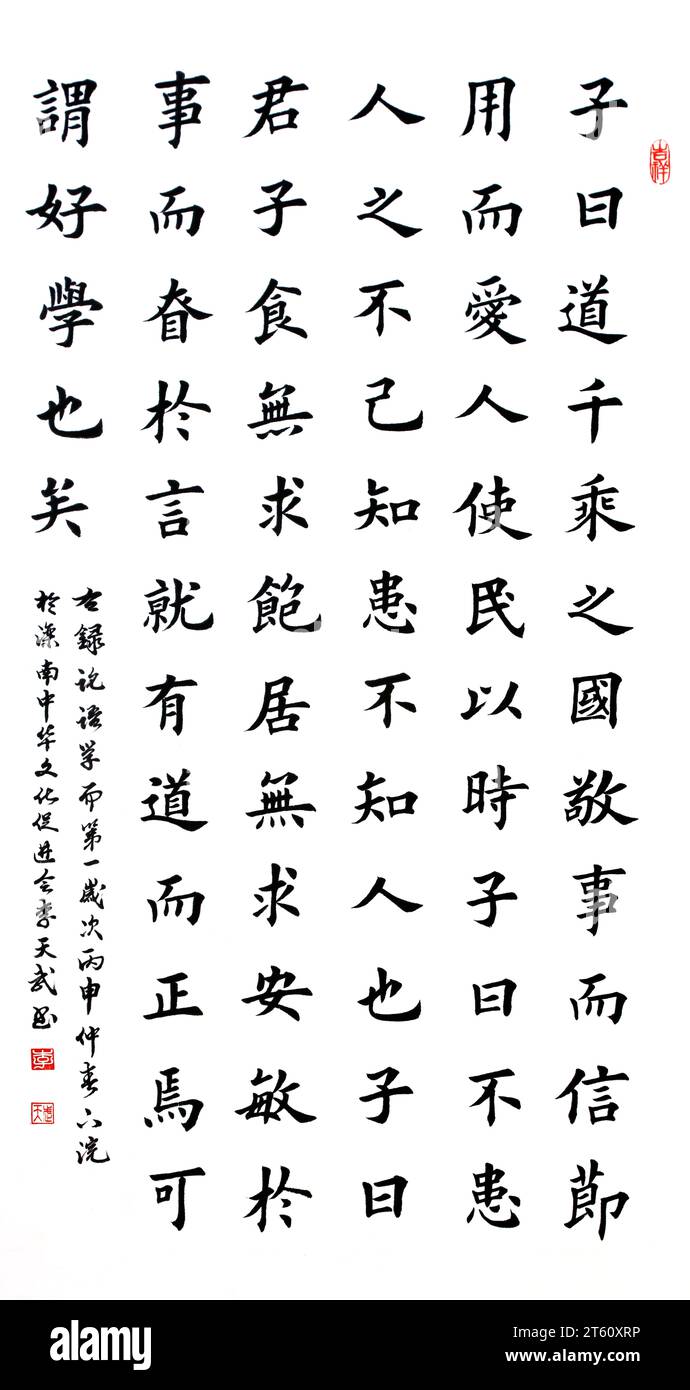 吉祥
子曰道千乘之國敬事而信節
用而愛人使民以時子曰不患
人之不己知患不知人也子曰
君子食無求飽居無求安敏於
事而眘於言就有道而正焉可
謂好學也矣
右録论语学而第一歲次丙申仲春下浣
於南中华文化促進会李天武书
李
天武
alamy
Image ID: 2T60XRP
www.alamy.com